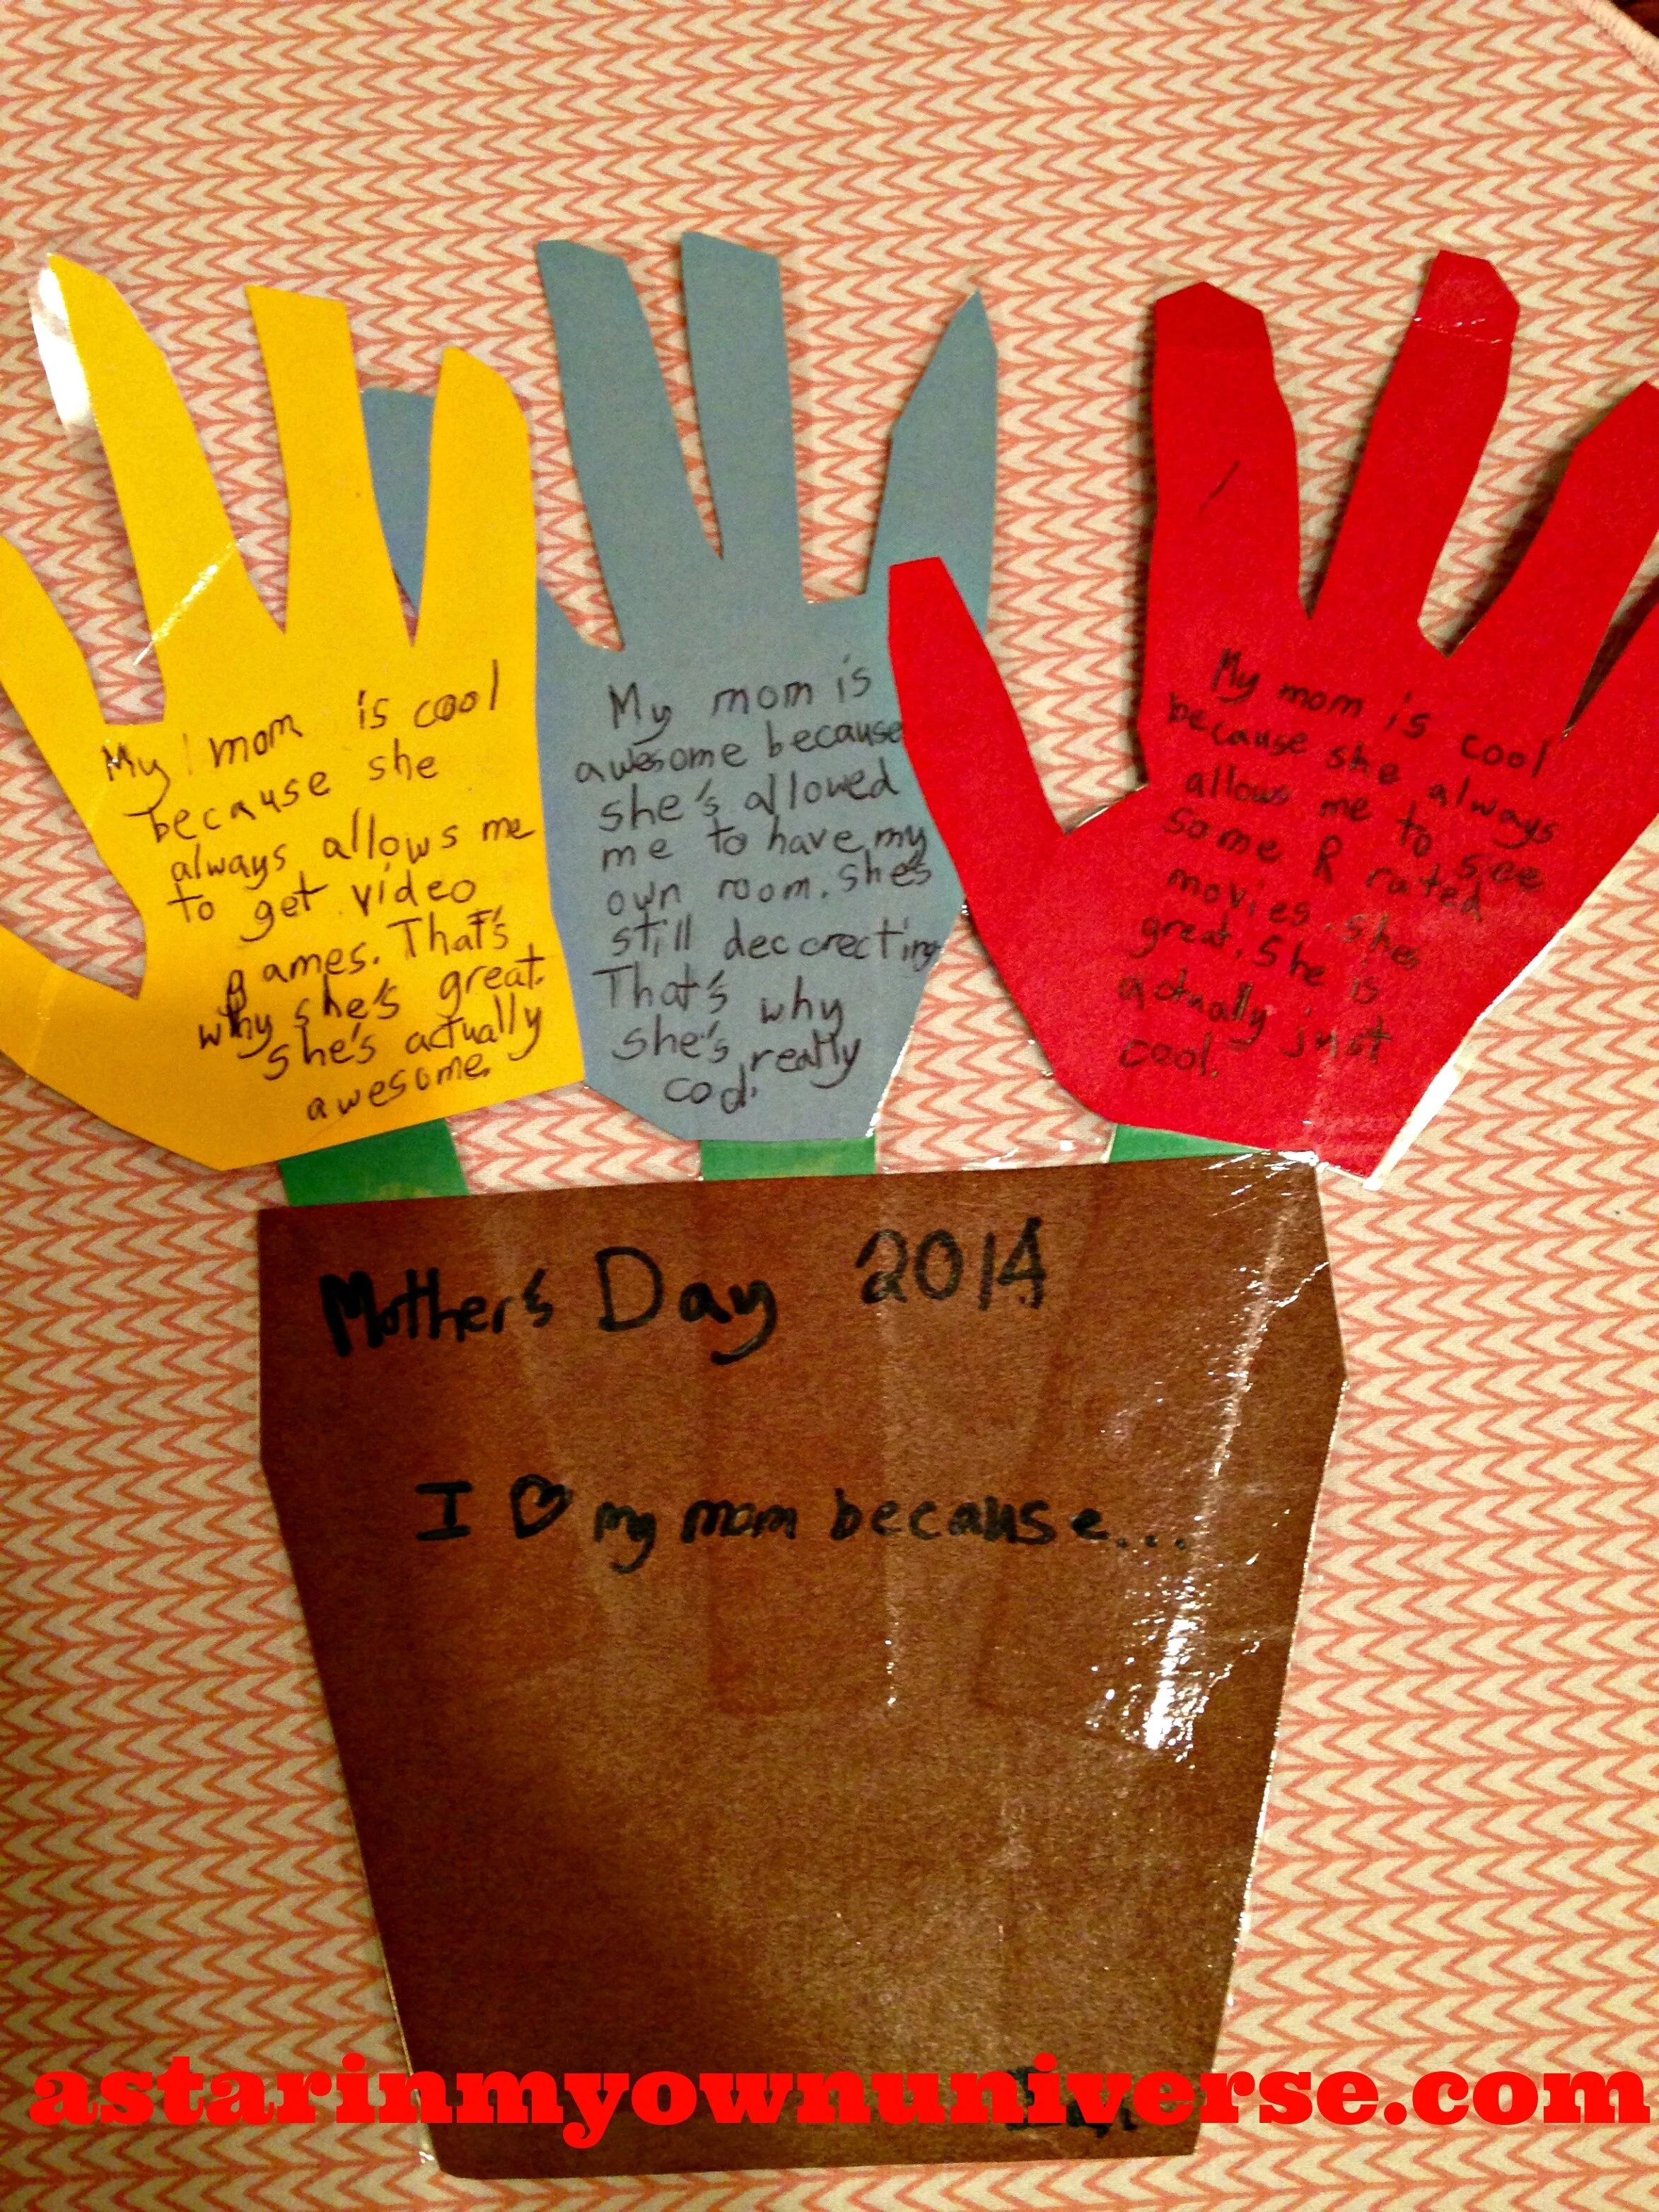 My mom is cool
because she
always allows me
to get video
games. That's
why she's great.
She's actually
awesome.
My mom is
awesome because
she's allowed
me to have my
own room. She's
still deccrecting
That's why
she's really
cool.
My mom is cool
because she always
allows me to see
some R rated
movies. She's
great. She is
actually just
cool.
Mother's Day 2014
I ♡ my mom because...
astarinmyownuniverse.com